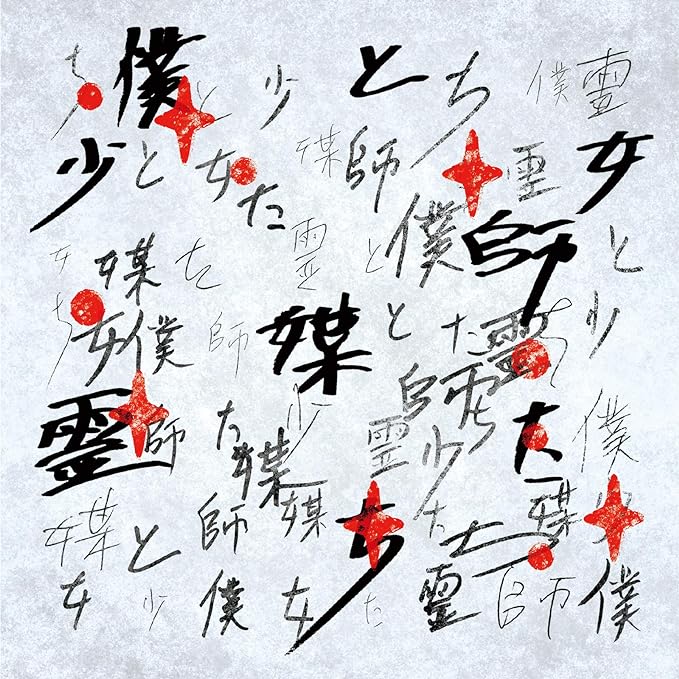 ち僕と少とち僕霊
少と女た媒師霊女
女媒た霊と僕師と
ち女僕師媒とた霊ち少
霊師た少媒霊師少ちた僕
媒と師媒ちたち媒少
女少僕女た霊師僕